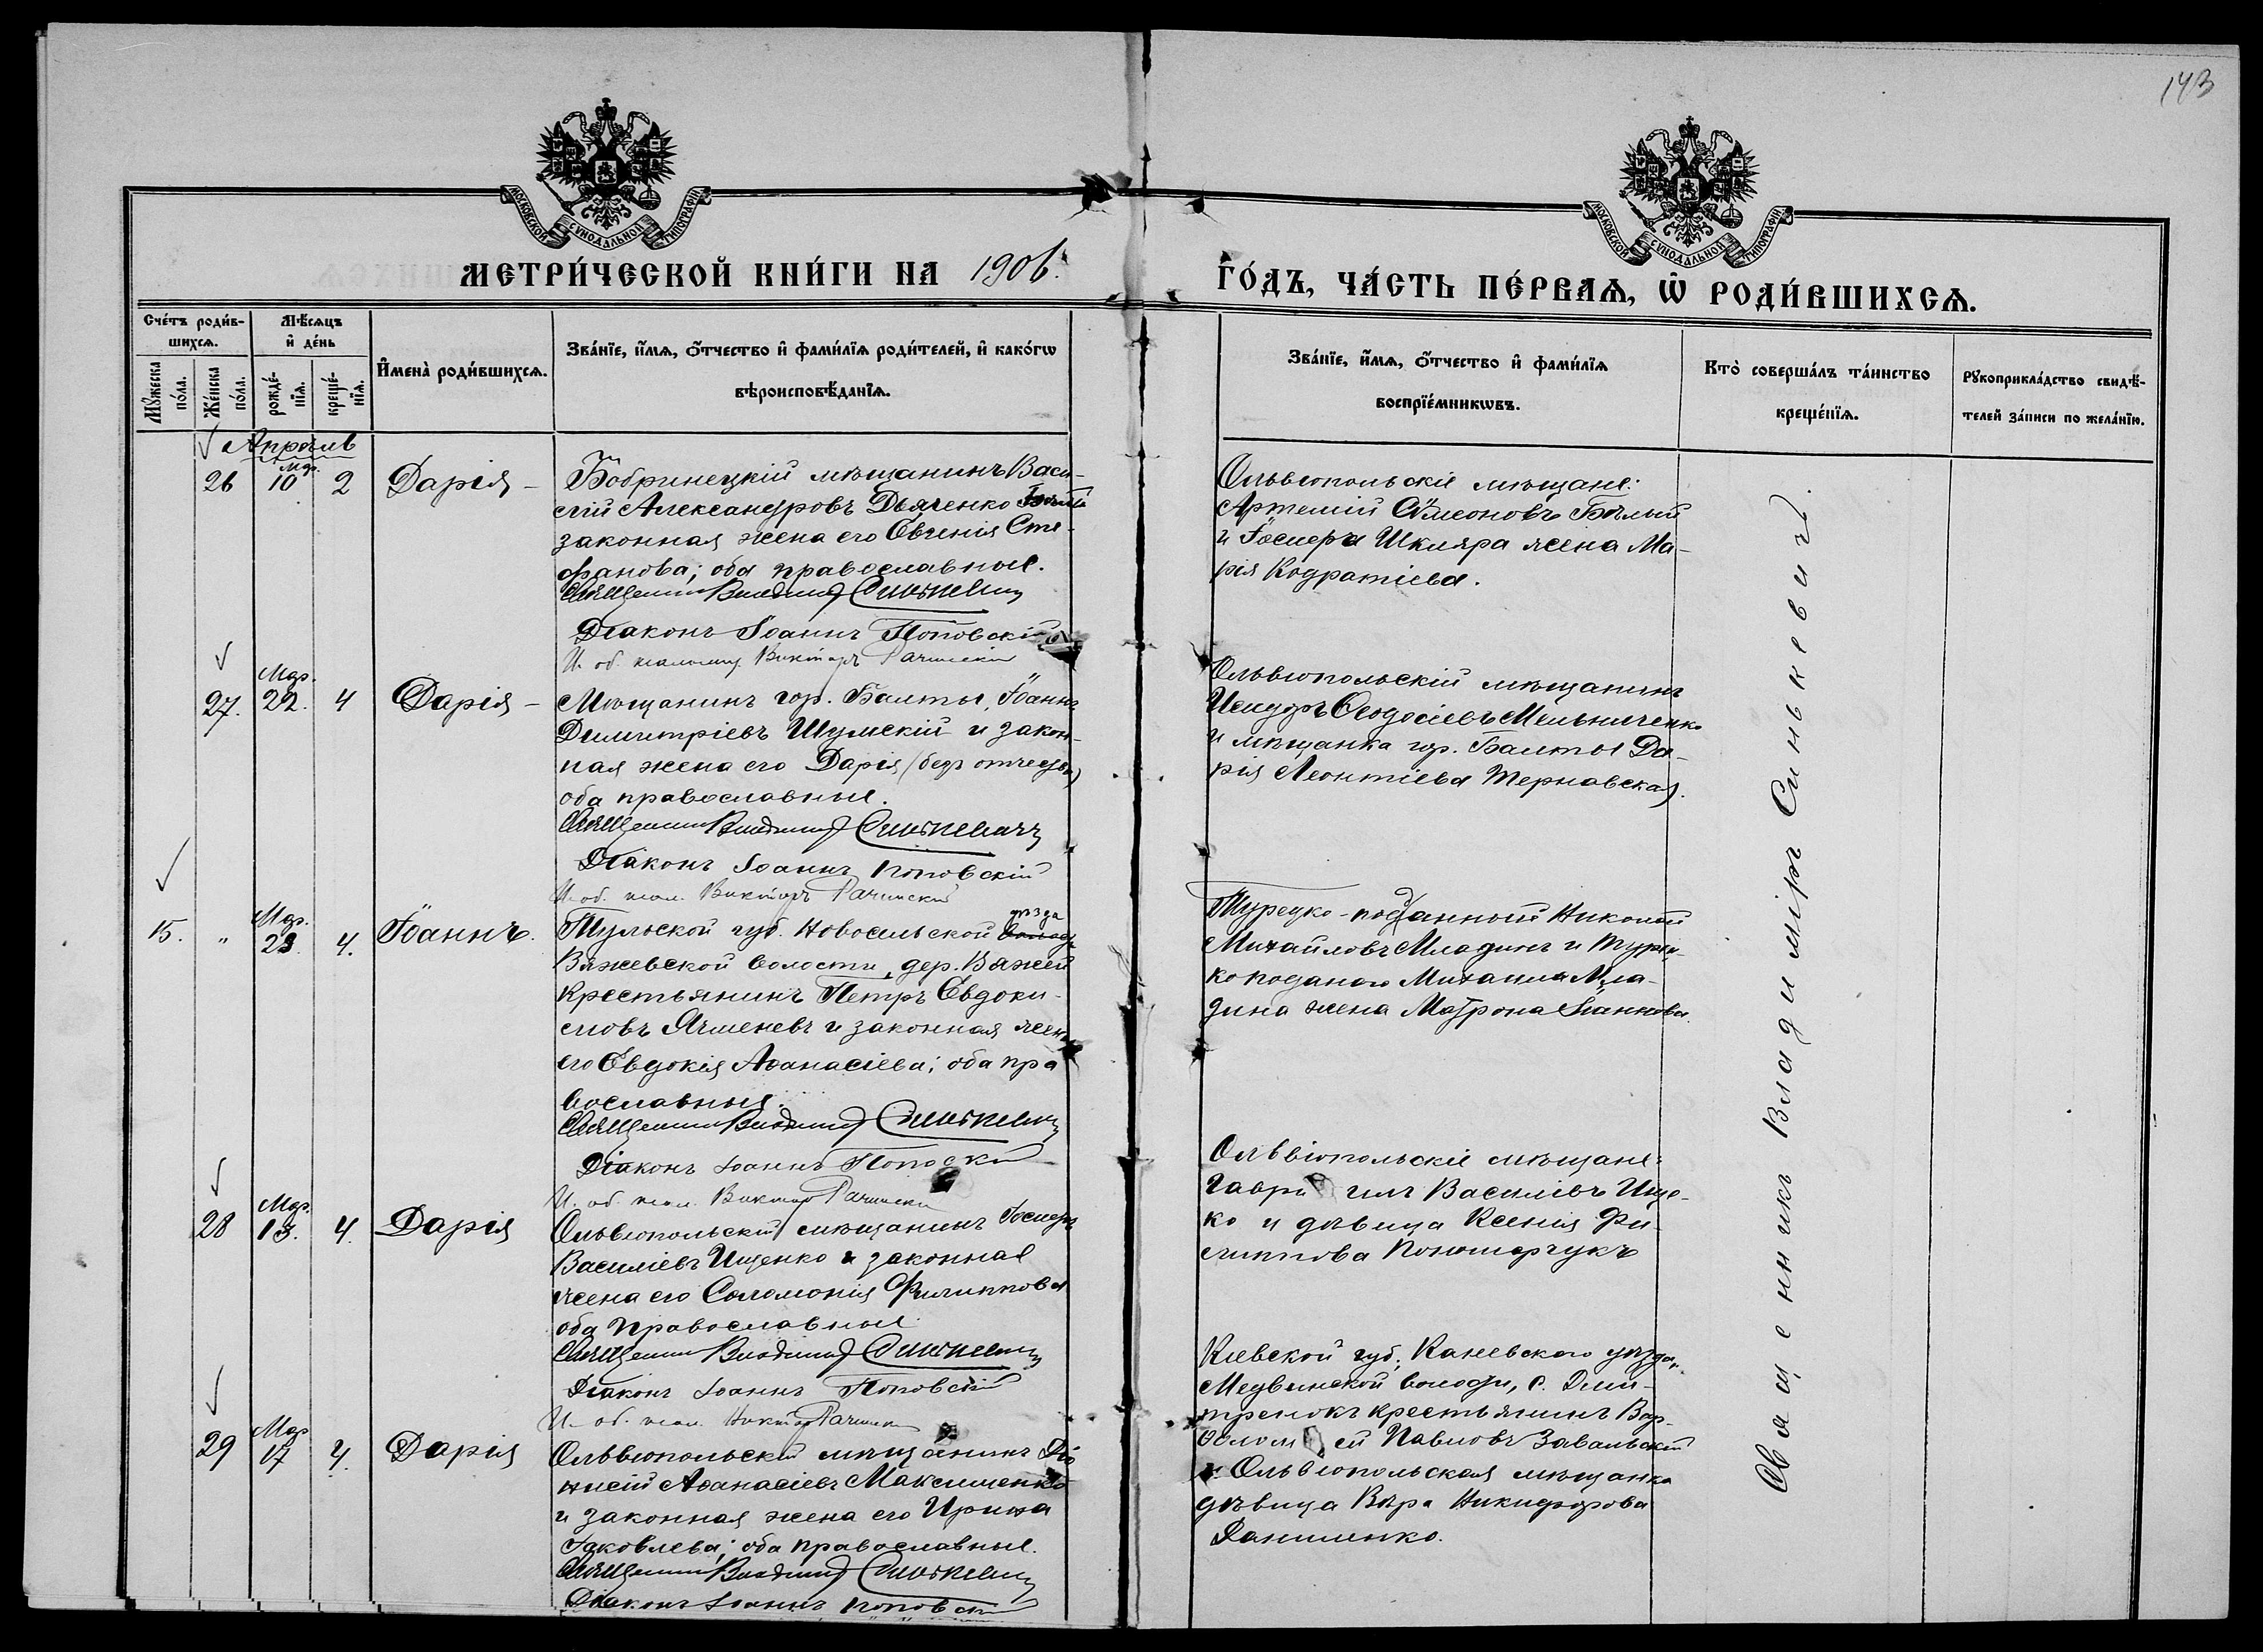 143
МОСКОВСКОЙ СѴНОДАЛЬНОЙ ТИПОГРАФІИ
МОСКОВСКОЙ СѴНОДАЛЬНОЙ ТИПОГРАФІИ
МЕТРИ́ЧЕСКОЙ КНИ́ГИ НА 1906 г. ГО́ДЪ, ЧА́СТЬ ПЕ́РВАѦ, Ѡ҆ РОДИ́ВШИХСѦ.
Сче́тъ роди́в-
шихсѧ.
Мꙋ́жеска по́ла.
Же́нска по́ла.
Мѣ́сѧцъ
и҆ де́нь
рожде́-
нїѧ.
креще́-
нїѧ.
И҆мена̀ роди́вшихсѧ.
Зва́нїе, и҆́мѧ, ѻ҆́тчество и҆ фами́лїѧ роди́телей, и҆ како́гѡ
вѣроисповѣ́данїѧ.
Зва́нїе, и҆́мѧ, ѻ҆́тчество и҆ фами́лїѧ
воспрїе́мникѡвъ.
Кто̀ соверша́лъ та́инство
креще́нїѧ.
Рꙋкоприкла́дство свидѣ́-
телей за́писи по жела́нїю.
Апрѣль
26 Мар. 10 2 Дарія -
Бобринецкій мѣщанинъ Васи-
лій Александровъ Дьяченко
законная жена его Евгенія Сте-
фанова; оба православные.
Священникъ Владимір Синькевич
Діаконъ Іоаннъ Поповскій
И. об. псаломщ. Викторъ Рачинскій
Ольвіопольскіе мѣщане:
Артемій Сѵмеоновъ Бѣлый
и Іосифа Шкляра жена Ма-
рія Кодратіева.
27. Мар. 22. 4 Дарія -
Мѣщанинъ гор. Балты, Іоаннъ
Димитріевъ Шумскій и закон-
ная жена его Дарія (безъ отчества)
оба православные.
Священникъ Владимір Синькевичъ
Діаконъ Іоаннъ Поповскій
И. об. псал. Викторъ Рачинскій
Ольвіопольскій мѣщанинъ
Исидоръ Ѳеодосіевъ Мельниченко
и мѣщанка гор. Балты Да-
рія Леонтіева Терновская.
15. " Мар. 23. 4. Іоаннъ.
Тульской губ. Новосильской уѣзда
Вяжевской волости, дер. Вяжей
крестьянинъ Петръ Евдоки-
мовъ Ячменевъ и законная жена
его Евдокія Аѳанасіева; оба пра
вославные.
Священникъ Владимір Синькевич
Діаконъ Іоаннъ Попоскій
И. об. псал. Викторъ Рачинскій
Турецко-подданный Николай
Михайловъ Младинъ и турец-
ко поданаго Михаила Мла-
дина жена Матрона Іоаннова.
28 Мар. 13. 4. Дарія
Ольвіопольскій мѣщанинъ Іосифъ
Василіевъ Ищенко и законная
жена его Соломонія Филиппова
оба православные.
Священникъ Владимір Синькевич
Діаконъ Іоаннъ Поповскій
И. об. псал. Викторъ Рачинскій
Ольвіопольскіе мѣщане:
Гаври илъ Василіевъ Ище-
ко и дѣвица Ксенія Фи-
липпова Пономарчукъ
29 Мар 17 4. Дарія
Ольвіопольскій мѣщанинъ Діо
нисій Аѳанасіевъ Максименко
и законная жена его Ирина
Іаковлева; оба православные.
Священникъ Владимір Синькевич
Діаконъ Іоаннъ Поповскій
Кіевской губ., Каневского уѣзда,
Медвинской волости, с. Дми-
тренокъ крестьянинъ Вар-
ѳолом ей Павловъ Завальскій
и Ольвіопольская мѣщанка
дѣвица Вѣра Никифорова
Даниленко.
Священникъ Владиміръ Синькевичъ.